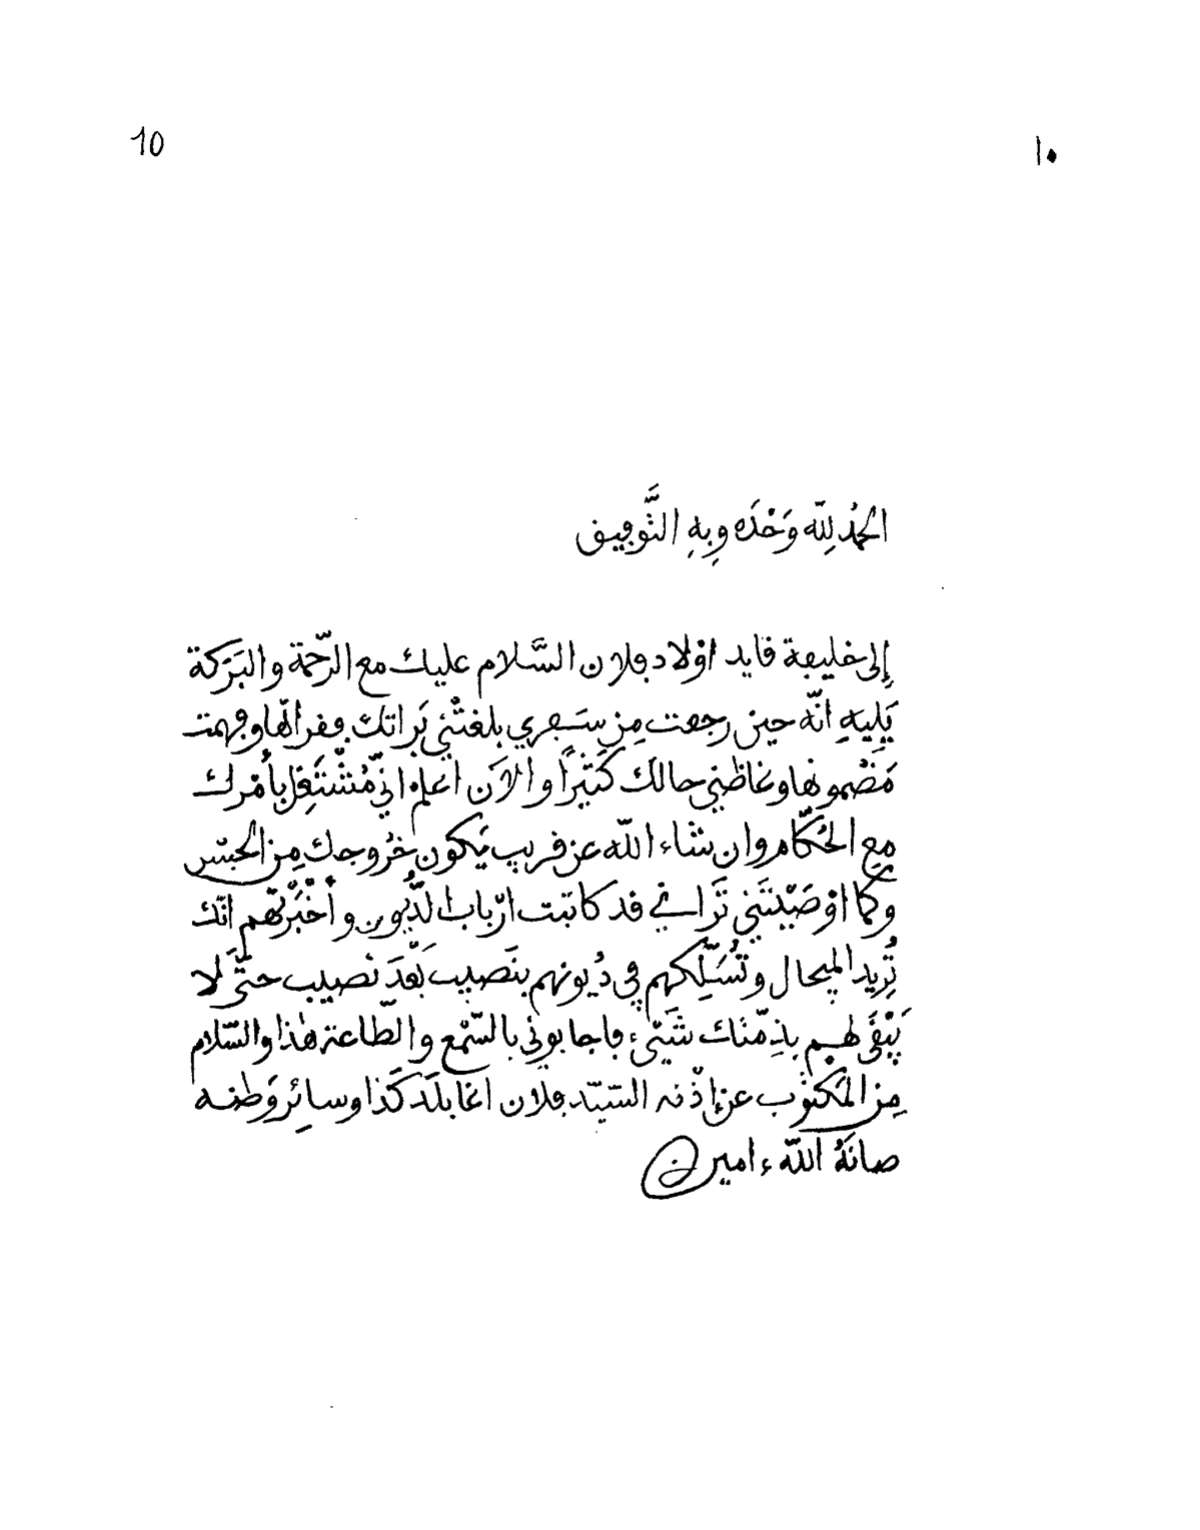 10
١٠
الحمدُ لِلّه وَحْدَه وِبِهِ التَّوفيق
إلى خليفة قايد اوْلاد فلان السَّلام عليك مع الرّحمة والبَرَكة
يَلِيهِ انّه حين رجعت مِن سَفري بلغتْني بَراتك فقراتها وفهمت
مَضْمونها وغاظني حالك كَثيرًا والآن اعلم انّي مُشْتَغِل بأمْرك
مع الحُكّام وان شاء اللّه عن قريب يَكون خُروجك مِن الحبس
وكما اوْصَيْتَني تَراني قد كاتبت ارْباب الدُّيون وأخْبَرْتهم انّك
تُرِيد المِحال وتُسَلِّكهم في دُيونهم بنَصيب بَعْدَ نصيب حتَّى لا
يَبْقَى لهم بذِمّتك شَيْء فاجابوني بالسّمْع والطّاعة هٰذا والسّلام
مِن المَكتوْب عن إذْنه السّيّد فلان اغا بلَد كَذا وسائِر وَطنه
صانَهُ اللّه ءامين